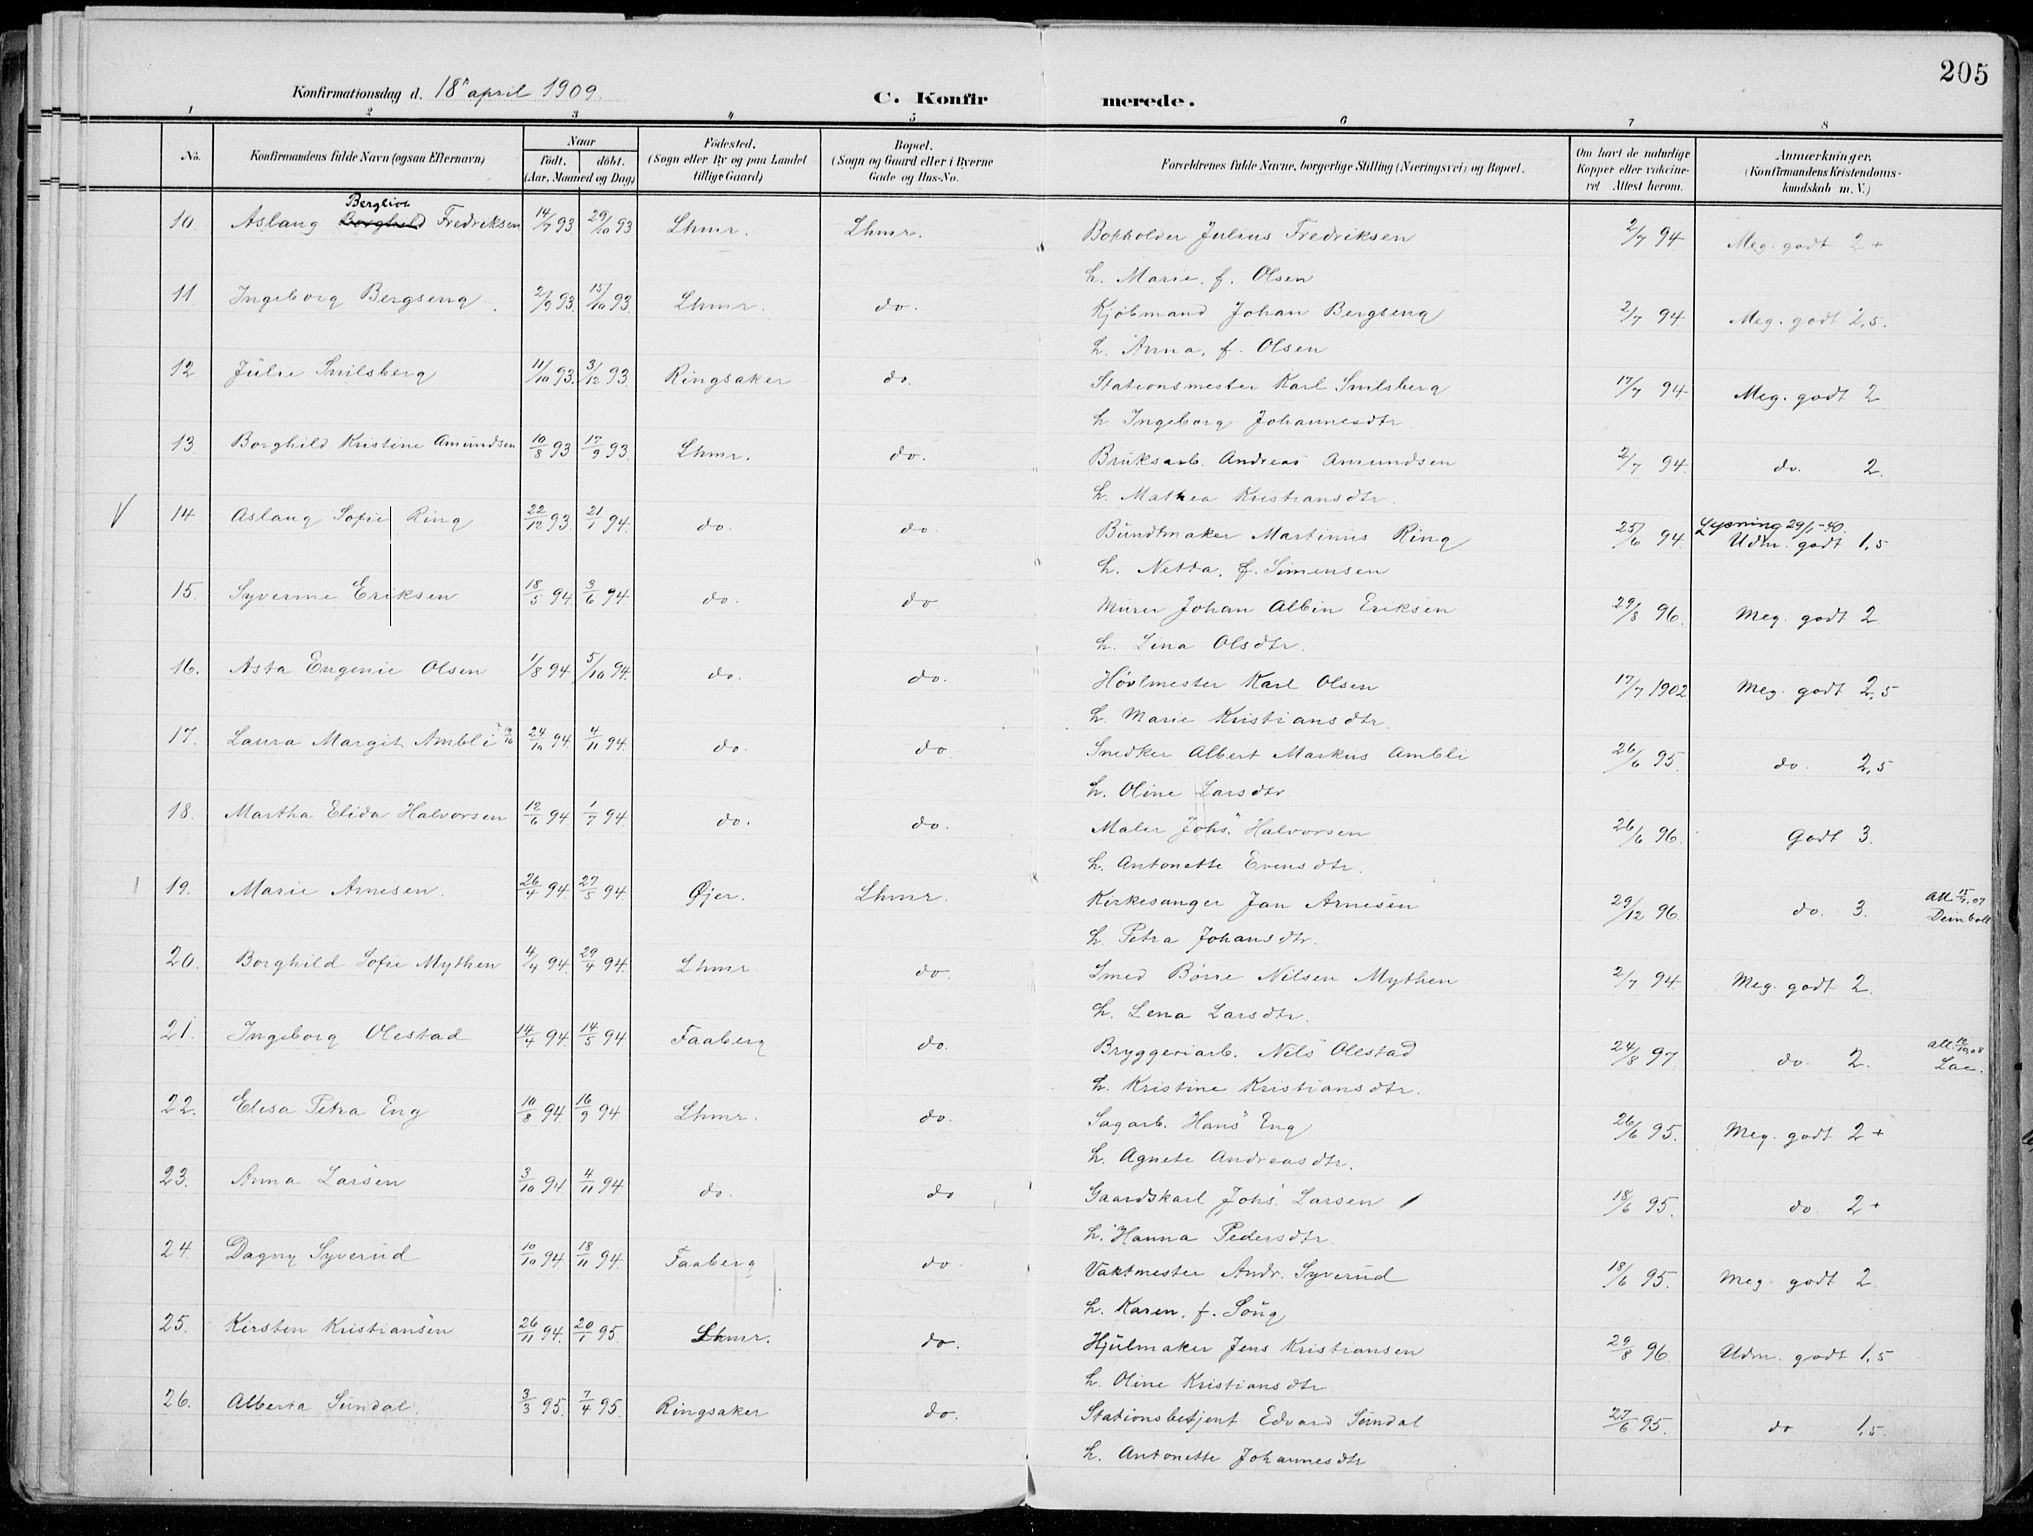 205
Konfirmationsdag d. 18 april 1909.
C. Konfirmerede.
1 2 3 4 5 6 7 8
No. Konfirmandens fulde Navn (ogsaa Efternavn) Naar födt. döbt. (Aar, Maaned og Dag) Födested. (Sogn eller By og paa Landet tillige Gaard) Bopæl. (Sogn og Gaard eller i Byerne Gade og Hus-No. Forældrenes fulde Navne, borgerlige Stilling (Næringsvei) og Bopæl. Om havt de naturlige Kopper eller vakcineret Attest herom. Anmærkninger. (Konfirmandens Kristendomskundskab m. V.)
Bergliot
10. Aslaug Borghild Fredriksen 14/7 93 29/10 93 Lhmr. Lhmr. Bopholder Julius Fredriksen 2/7 94 Meg. godt 2+
h. Marie, f. Olsen
11. Ingeborg Bergseng 2/9 93 15/10 93. Lhmr. do. Kjöbmand Johan Bergseng 2/7 94. Meg. godt 2,5.
h. Anna, f. Olsen
12 Julie Smilsberg 11/10 93. 3/12 93. Ringsaker do. Stationsmester Karl Smilsberg 17/7 94 Meg. godt 2
h. Ingeborg Johannesdtr.
13. Borghild Kristine Amundsen 10/8 93 17/9 93. Lhmr. do. Bruksarb. Andreas Amundsen 2/7 94. do. 2.
h. Mathea Kristiansdtr.
V 14 Aslaug Sofie Ring 22/12 93. 21/1 94. do. do. Bundtmaker Martinius Ring 25/6 94. Lysning 29/1-40. Udm. godt 1,5
h. Netta, f. Simensen
15. Syverine Eriksen 18/5 94. 3/6 94 do. do. Murer Johan Albin Eriksen 29/8 96. Meg. godt 2.
h. Lina Olsdtr.
16. Asta Eugenie Olsen 1/8 94. 5/10 94. do. do. Høvlmester Karl Olsen 17/7 1902 Meg. godt 2,5
h. Marie Kristiansdtr.
17. Laura Margit Ambli ? 19/10 24/10 94. 4/11 94. do. do Snedker Albert Markus Ambli 26/6 95. do. 2,5
h. Oline Larsdtr
18. Martha Elida Halvorsen 12/6 94 1/7 94. do. do. Maler Johs. Halvorsen 26/6 96. Godt 3.
h. Antonette Evensdtr.
19. Marie Arnesen. 26/4 94. 27/5 94. Øjer. Lhmr. Kirkesanger Jan Arnesen 29/12 96. do. 3. Att. 15/7.07 Deinboll
h. Petra Johansdtr.
20. Borghild Sofie Mythen 4/4 94 29/4 94. Lhmr. do. Smed Børre Nilsen Mythen 2/7 94. Meg. godt 2.
h. Lena Larsdtr.
21. Ingeborg Olestad 14/4 94. 14/5 94 Faaberg do. Bryggeriarb. Nils Olestad 24/8 97. do. 2. Att. 1908
h. Kristine Kristiansdtr.
22. Elisa Petra Eng 10/8 94. 16/9 94 Lhmr. do. Sagarb. Hans Eng 26/6 95. Meg. godt 2+
h. Agnete Andreasdtr.
23. Anna Larsen 3/10 94 4/11 94 do. do Gaardskarl Johs. Larsen 18/6 95. do. 2+
h. Hanna Pedersdtr.
24. Dagny Syverud 10/10 94. 18/11 94. Faaberg do. Vaktmester Andr. Syverud 18/6 95. Meg. godt 2.
h. Karen, f. Soug
25. Kirsten Kristiansen 26/11 94. 20/1 95. Lhmr. do. Hjulmaker Jens Kristiansen 29/8 96 Udm. godt 1,5
h. Oline Kristiansdtr
26. Alberta Sundal. 3/3 95. 7/4 95. Ringsaker do. Stationsbetjent Edvard Sundal 27/6 95. do 1,5.
h. Antonette Johannesdtr